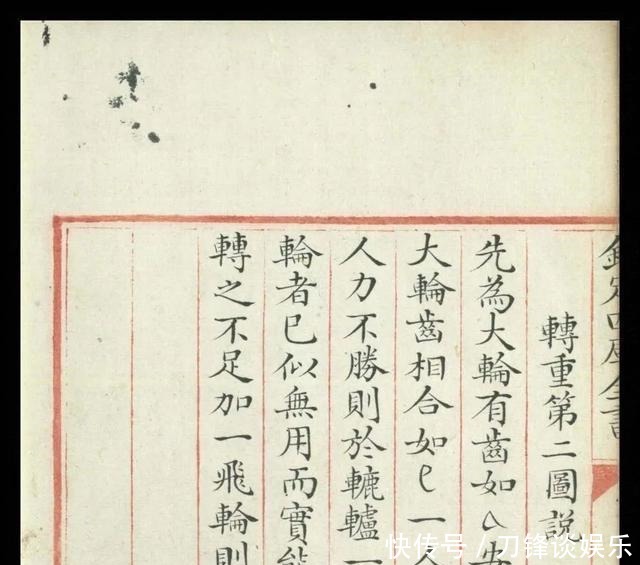 欽定四庫全書
轉重第二圖說
先為大輪有齒如
大輪齒相合如 一人
人力不勝則於轆轤一
輪者已似無用而實能
轉之不足加一飛輪則
快传号／刀锋谈娱乐